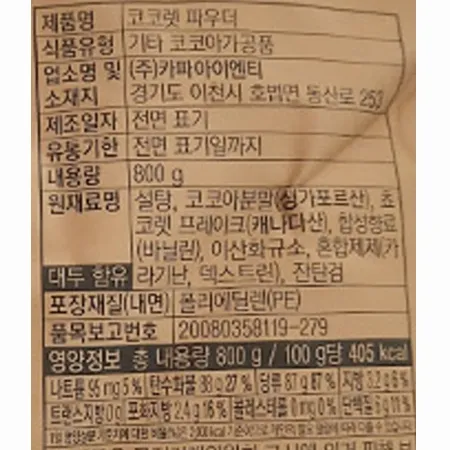 제품명 코코렛 파우더
식품유형 기타 코코아가공품
업소명 및 (주)카파아이엔티
소재지 경기도 이천시 호법면 동산로 253
제조일자 전면 표기
유통기한 전면 표기일까지
내용량 800 g
원재료명 설탕, 코코아분말(싱가포르산), 초
코렛 프레이크(캐나다산), 합성향료
(바닐린), 이산화규소, 혼합제제(카
대두 함유 라기난, 덱스트린), 잔탄검
포장재질(내면) 폴리에틸렌(PE)
품목보고번호 20080358119-279
영양정보 총 내용량 800 g / 100 g당 405 kcal
나트륨 95 mg 5% 탄수화물 88 g 27% 당류 87 g 87% 지방 3.2 g 6%
트랜스지방 0 g 포화지방 2.4 g 16% 콜레스테롤 0 mg 0% 단백질 6 g 11%